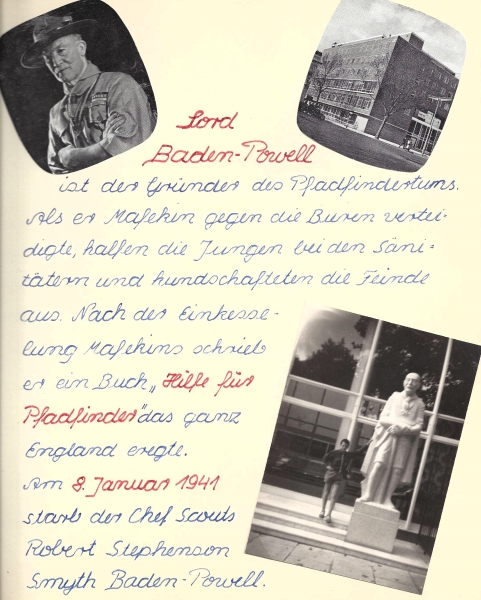 Lord
Baden-Powell
ist der Gründer des Pfadfindertums.
Als er Mafekin gegen die Buren vertei-
digte, halfen die Jungen bei den Säni=
tätern und kundschafteten die Feinde
aus. Nach der Einkesse-
lung Mafekins schrieb
er ein Buch „Hilfe für
Pfadfinder" das ganz
England eregte.
Am 8. Januar 1941
starb der Chef Scouts
Robert Stephenson
Smyth Baden-Powell.